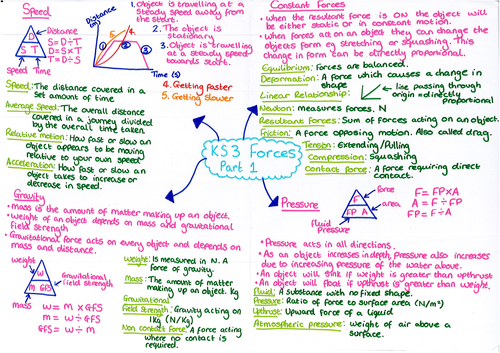 Speed
Distance
D
S T
Speed Time
S=D÷T
D=S×T
T=D÷S
Distance
(m)
1
2
3
4
5
Time (s)
1. Object is travelling at a
steady speed away from
the start.
2. The object is
stationary
3. Object is travelling
at a steady speed
towards start.
4. Getting faster
5. Getting slower
Speed: The distance covered in a
set amount of time
Average speed: The overall distance
covered in a journey divided
by the overall time taken.
Relative motion: How fast or slow an
object appears to be moving
relative to your own speed
Acceleration: How fast or slow an
object takes to increase or
decrease in speed.
Gravity
• Mass is the amount of matter making up an object.
• Weight of an object depends on mass and gravitational
field strength
• Gravitational force acts on every object and depends on
mass and distance.
weight
W
M GFS
mass
Gravitational
field strength
w = m × GFS
m = w ÷ GFS
GFS = w ÷ m
Weight: Is measured in N. A
force of gravity.
Mass: The amount of matter
making up an object. Kg
Gravitational
Field Strength: Gravity acting on
1kg (N/Kg)
Non contact force: A force acting
where no contact is
required.
KS3 Forces
Part 1
Constant Forces
• When the resultant force is 0N the object will
be either static or in constant motion.
• When forces act on an object they can change the
objects form eg stretching or squashing. This
change in form can be directly proportional.
Equilibrium: Forces are balanced.
Deformation: A force which causes a change in
shape
Linear Relationship:
line passing through
origin = directly
proportional
Newton: measures forces. N
Resultant Forces: Sum of forces acting on an object.
Friction: A force opposing motion. Also called drag.
Tension: Extending/Pulling
Compression: Squashing
Contact force: A force requiring direct
contact.
Pressure
force
F
FP A
area
fluid
Pressure
F = FP×A
A = F÷FP
FP = F÷A
• Pressure acts in all directions.
• As an object increases in depth, pressure also increases
due to increasing pressure of the water above.
• An object will sink if weight is greater than upthrust
• An object will float if upthrust is greater than weight.
Fluid: A substance with no fixed shape.
Pressure: Ratio of force to surface area (N/m²)
Upthrust: Upward force of a liquid
Atmospheric pressure: weight of air above a
surface.